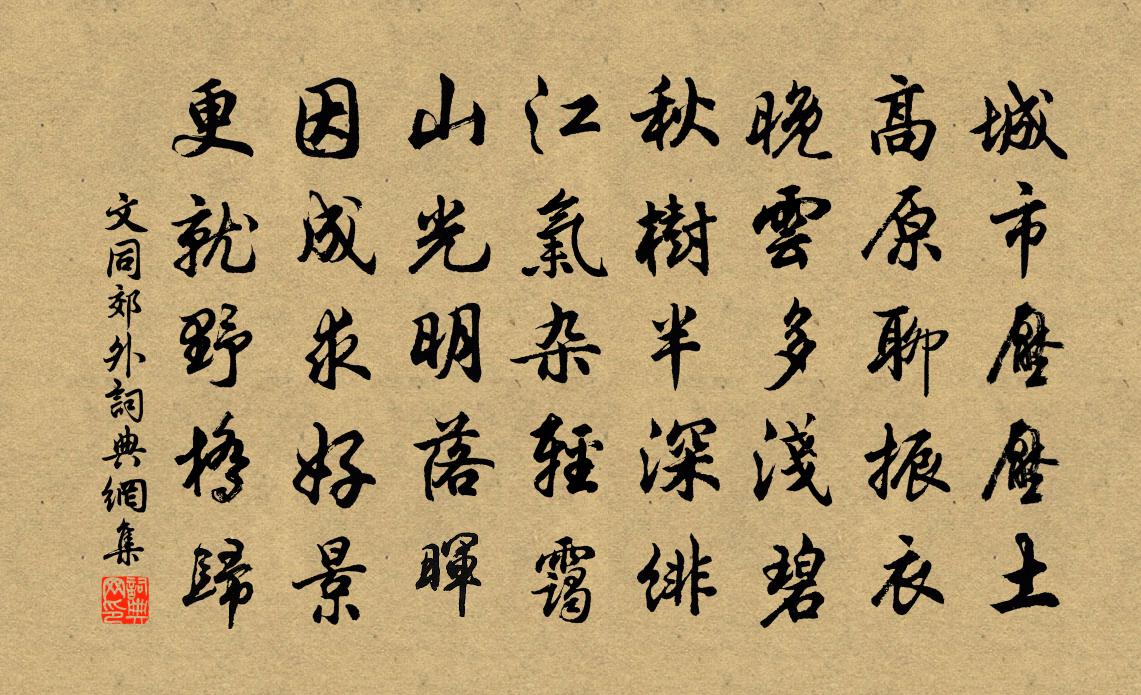 城市壓壓土
高原聊振衣
晚雲多淺碧
秋樹半深緋
江氣杂輕靄
山光明落暉
因成求好景
更就野橋歸
文同郊外詞典網集
詞典網印